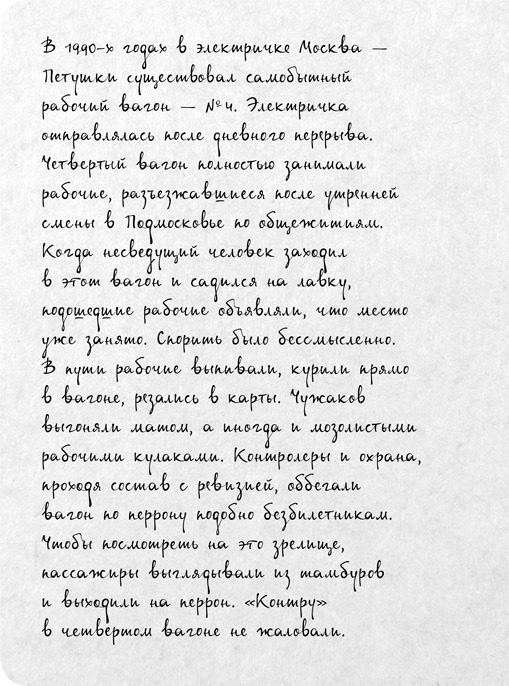 В 1990-х годах в электричке Москва —
Петушки существовал самобытный
рабочий вагон — №4. Электричка
отправлялась после дневного перерыва.
Четвертый вагон полностью занимали
рабочие, разъезжавшиеся после утренней
смены в Подмосковье по общежитиям.
Когда несведущий человек заходил
в этот вагон и садился на лавку,
подошедшие рабочие объявляли, что место
уже занято. Спорить было бессмысленно.
В пути рабочие выпивали, курили прямо
в вагоне, резались в карты. Чужаков
выгоняли матом, а иногда и мозолистыми
рабочими кулаками. Контролеры и охрана,
проходя состав с ревизией, оббегали
вагон по перрону подобно безбилетникам.
Чтобы посмотреть на это зрелище,
пассажиры выглядывали из тамбуров
и выходили на перрон. «Контру»
в четвертом вагоне не жаловали.